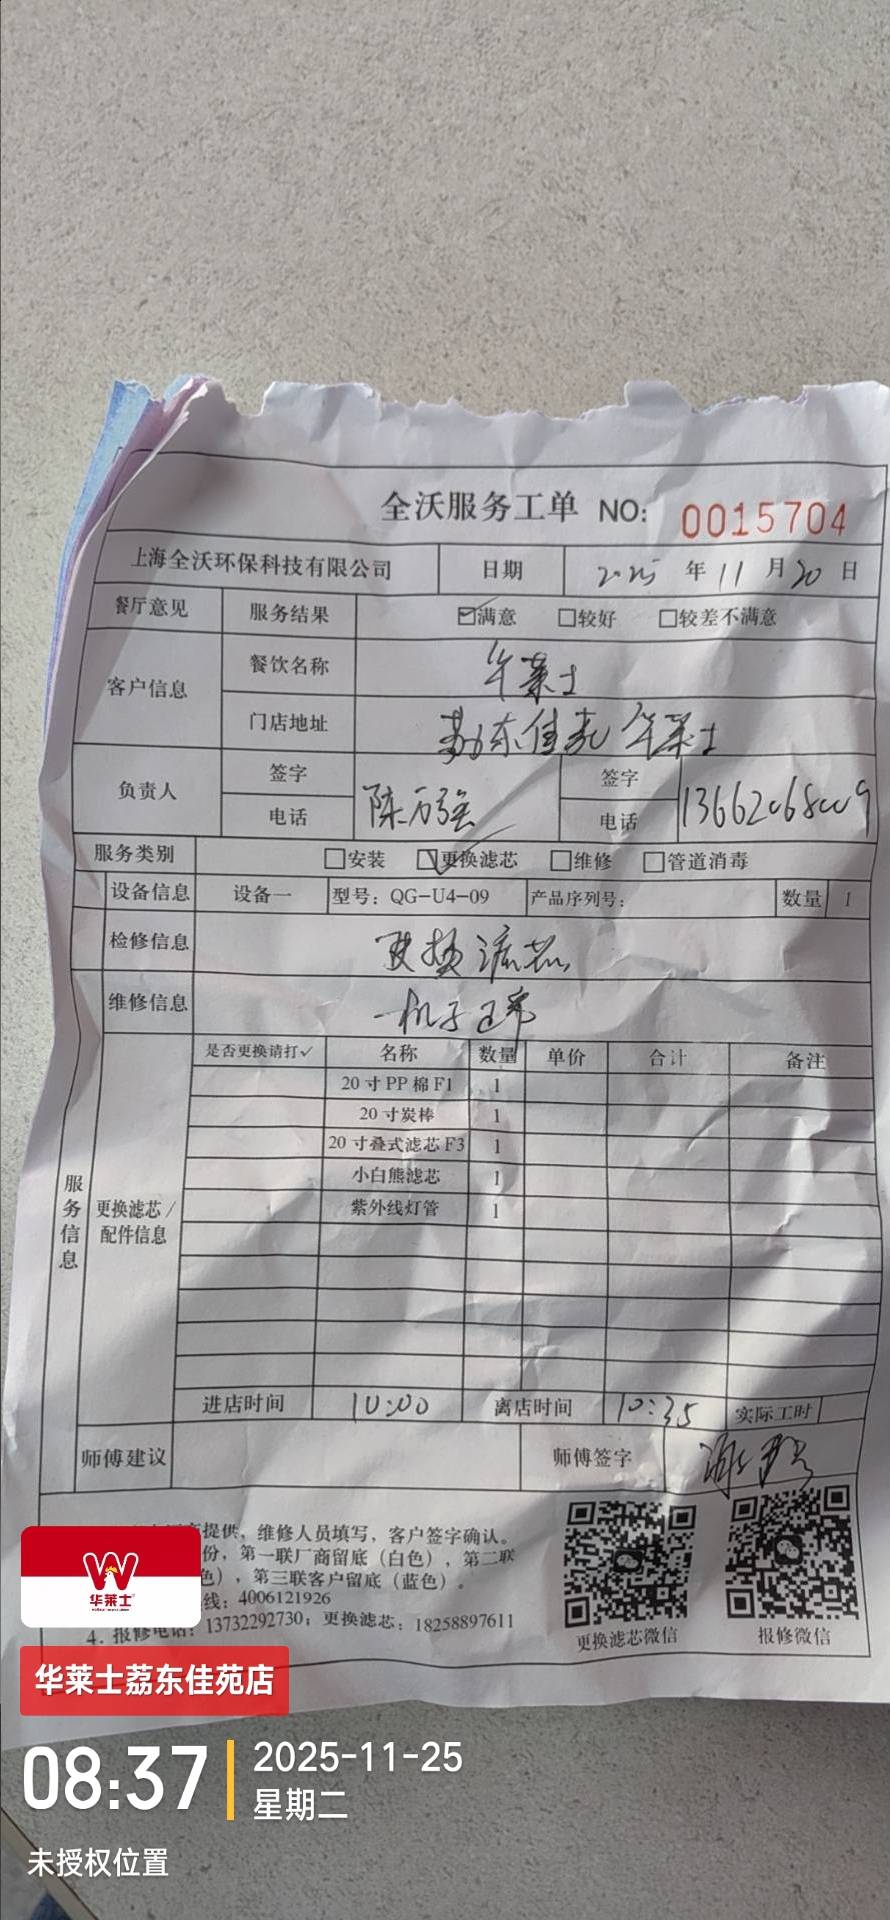 全沃服务工单 NO: 0015704
上海全沃环保科技有限公司 日期 2025 年 11 月 20 日
餐厅意见 服务结果 ☑满意 □较好 □较差不满意
客户信息 餐饮名称 华莱士
门店地址 荔东佳苑华莱士
负责人 签字 陈万强 签字
电话 电话 13662068009
服务类别 □安装 ☑更换滤芯 □维修 □管道消毒
设备信息 设备一 型号：QG-U4-09 产品序列号： 数量 1
检修信息 更换滤芯
维修信息 机子正常
服务信息
更换滤芯/
配件信息
是否更换请打✓ 名称 数量 单价 合计 备注
20寸PP棉F1 1
20寸炭棒 1
20寸叠式滤芯F3 1
小白熊滤芯 1
紫外线灯管 1
进店时间 10:00 离店时间 10:35 实际工时
师傅建议 师傅签字
提供，维修人员填写，客户签字确认。
份，第一联厂商留底（白色），第二联
色），第三联客户留底（蓝色）。
线：4006121926
4. 报修电话：13732292730；更换滤芯：18258897611
更换滤芯微信 报修微信
华莱士
华莱士荔东佳苑店
08:37 2025-11-25
星期二
未授权位置